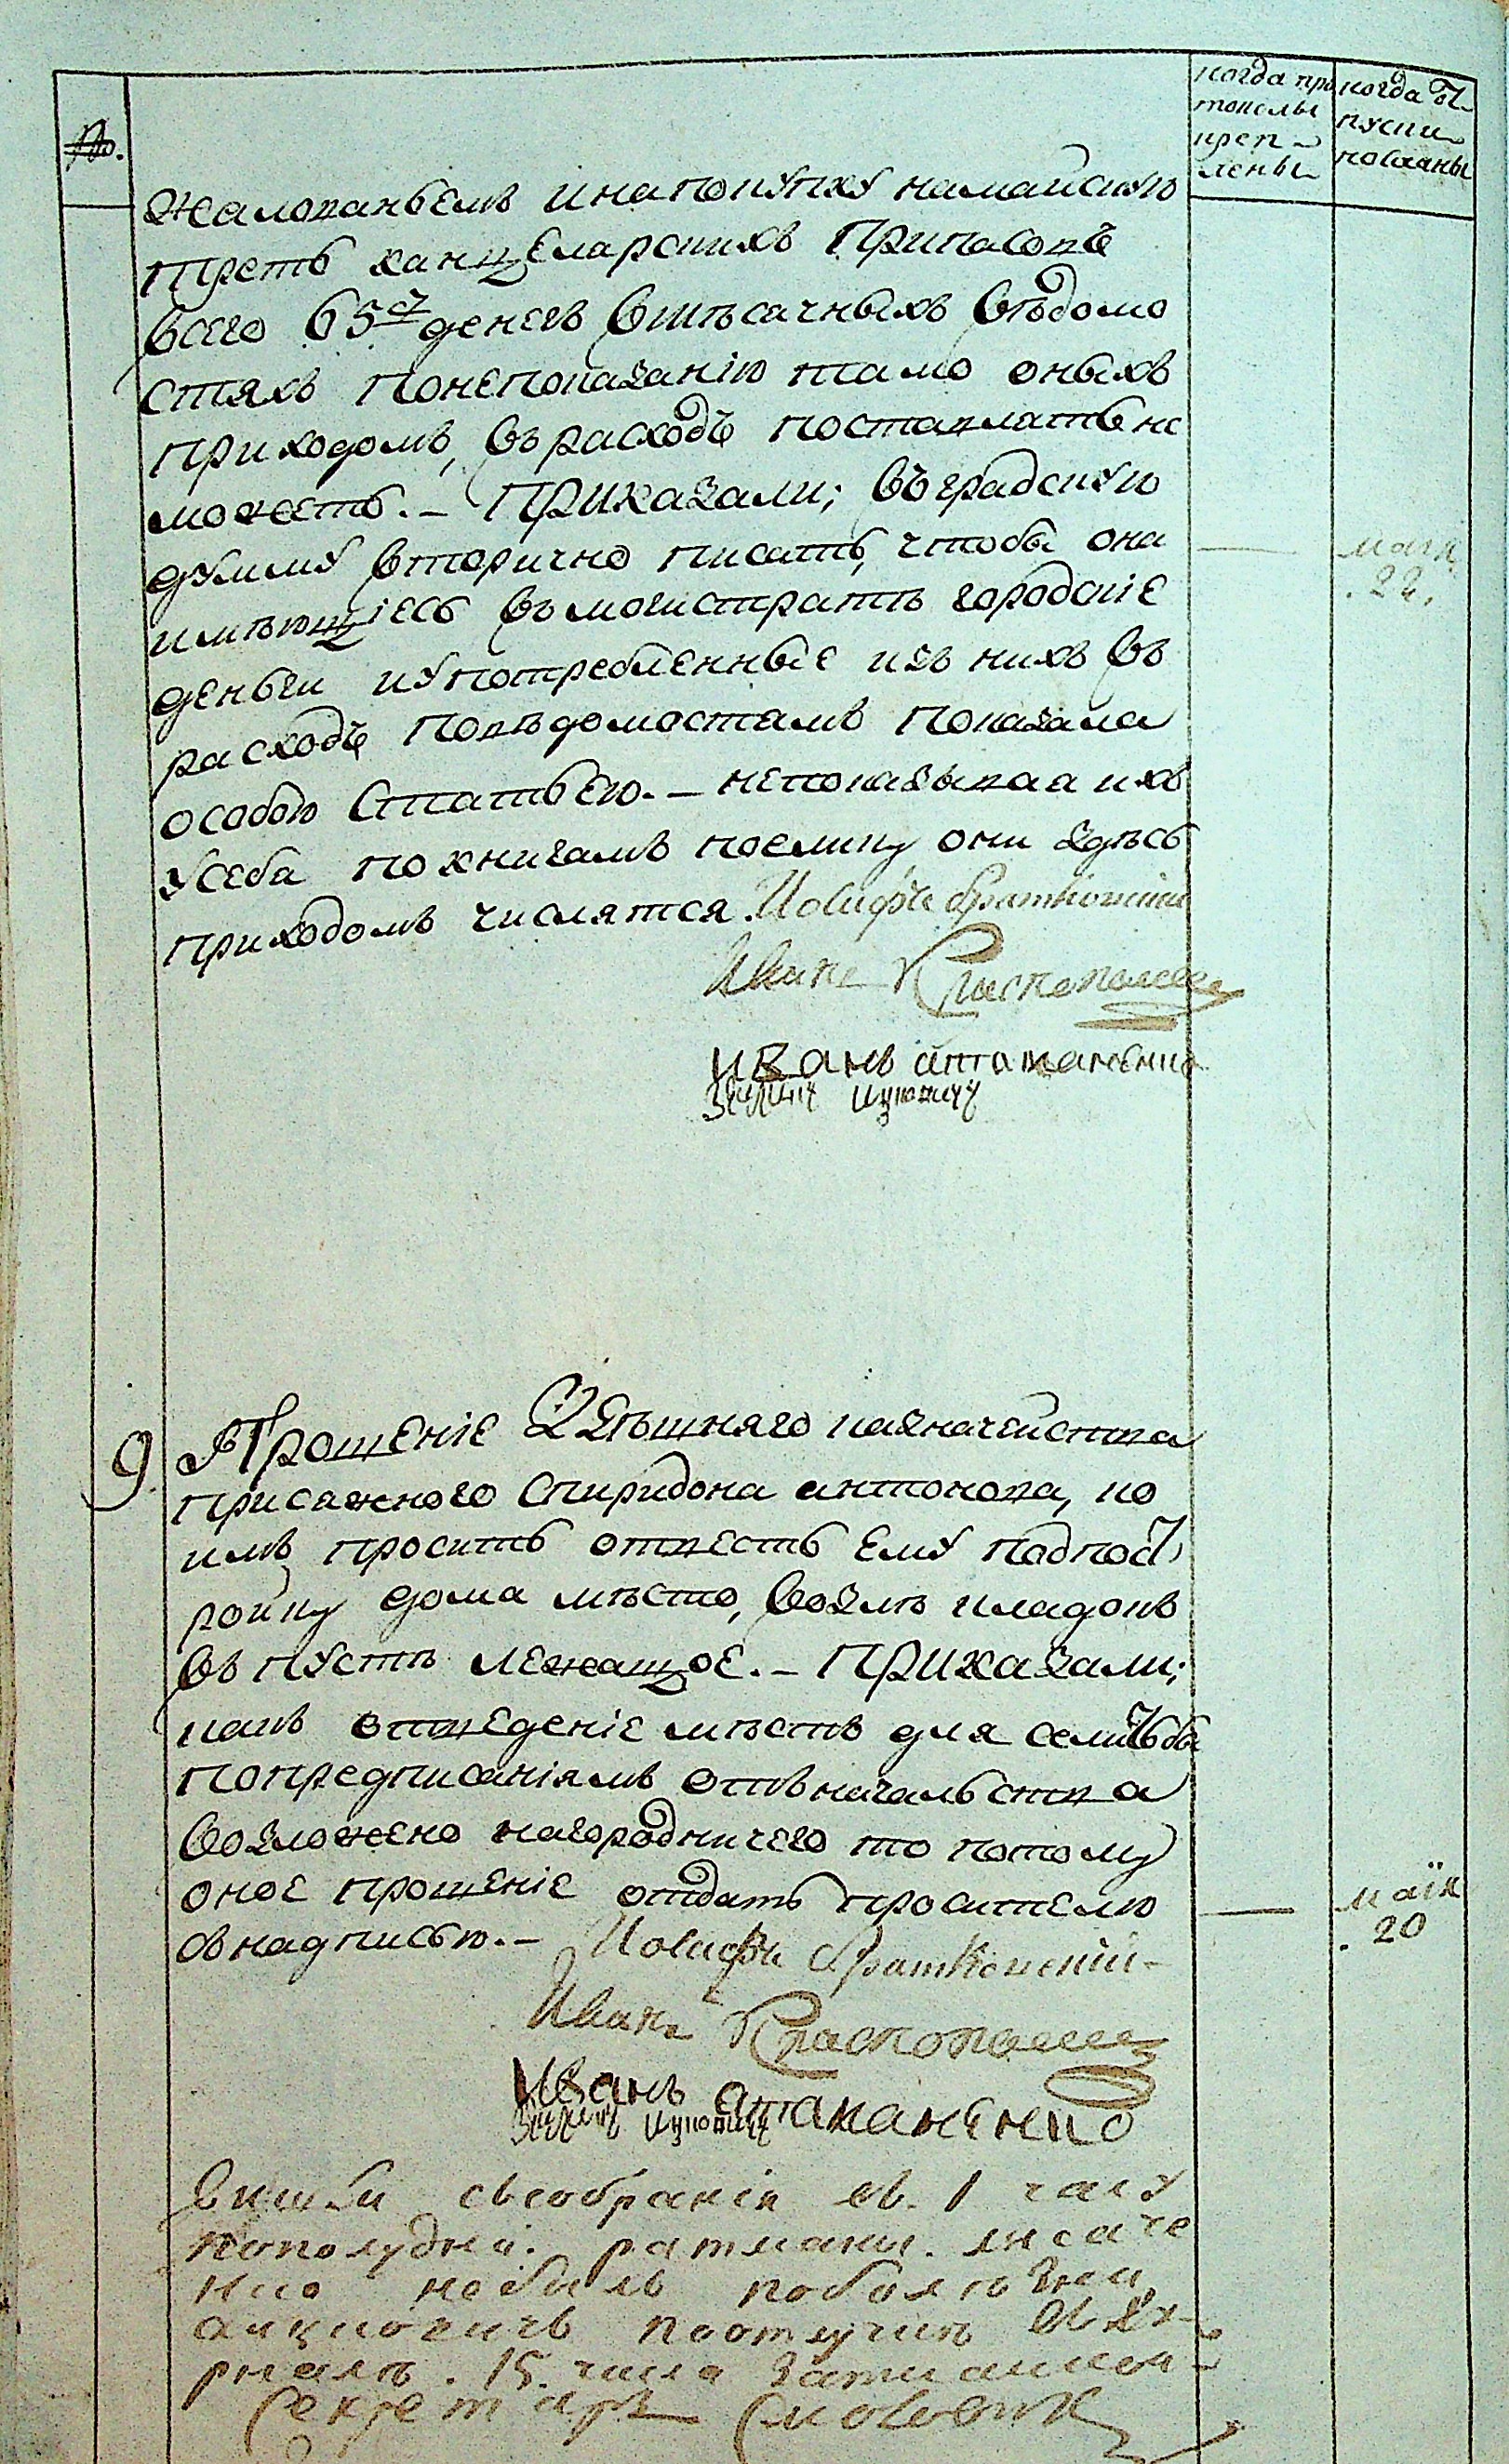 №.
когда про
токолы
креп-
лены
когда от
пуски
посланы
жалованьемъ и на покупку на майскую
треть канцеларскихъ припасовъ
всего 65 денегъ вмѣсачныхъ вѣдомо
стяхъ по непоказанію тамо оныхъ
приходомъ, въ расходъ поставлать не
можетъ. – приказали; въ градскую
думму вторично писать, чтобы она
имѣющіесь въ могистратѣ городскіе
деньги и употребленные изъ нихъ въ
расходъ по вѣдомостамъ показала
особою статьею. – не показывая ихъ
у себа по книгамъ поелику они здѣсь
приходомъ числятся. Іосифъ Братковскій
Иванъ Краснопольскій
иванъ атаманенко
маія
22.
9. Прошеніе Здѣшняго казначейства
присажного Спиридона антонова, ко
имъ проситъ отвесть ему под пост
ройку дома мѣсто, возлѣ кладокъ
въ пустѣ лежащое. – приказали;
какъ отведеніе мѣстъ для селитьбы
по предписаніямъ отъ начальства
возложено на городничего то потому
оное прошеніе отдать просителю
с надписью. – Іосифъ Братковскій
Иванъ Краснопольскій
Иванъ атаманенко
маія
20
Вишли съ собранія въ 1 часу
по полудни. ратманы. Исаче
нко небилъ поболѣзни
въ жу-
рналѣ. 15. числа
Секретарь